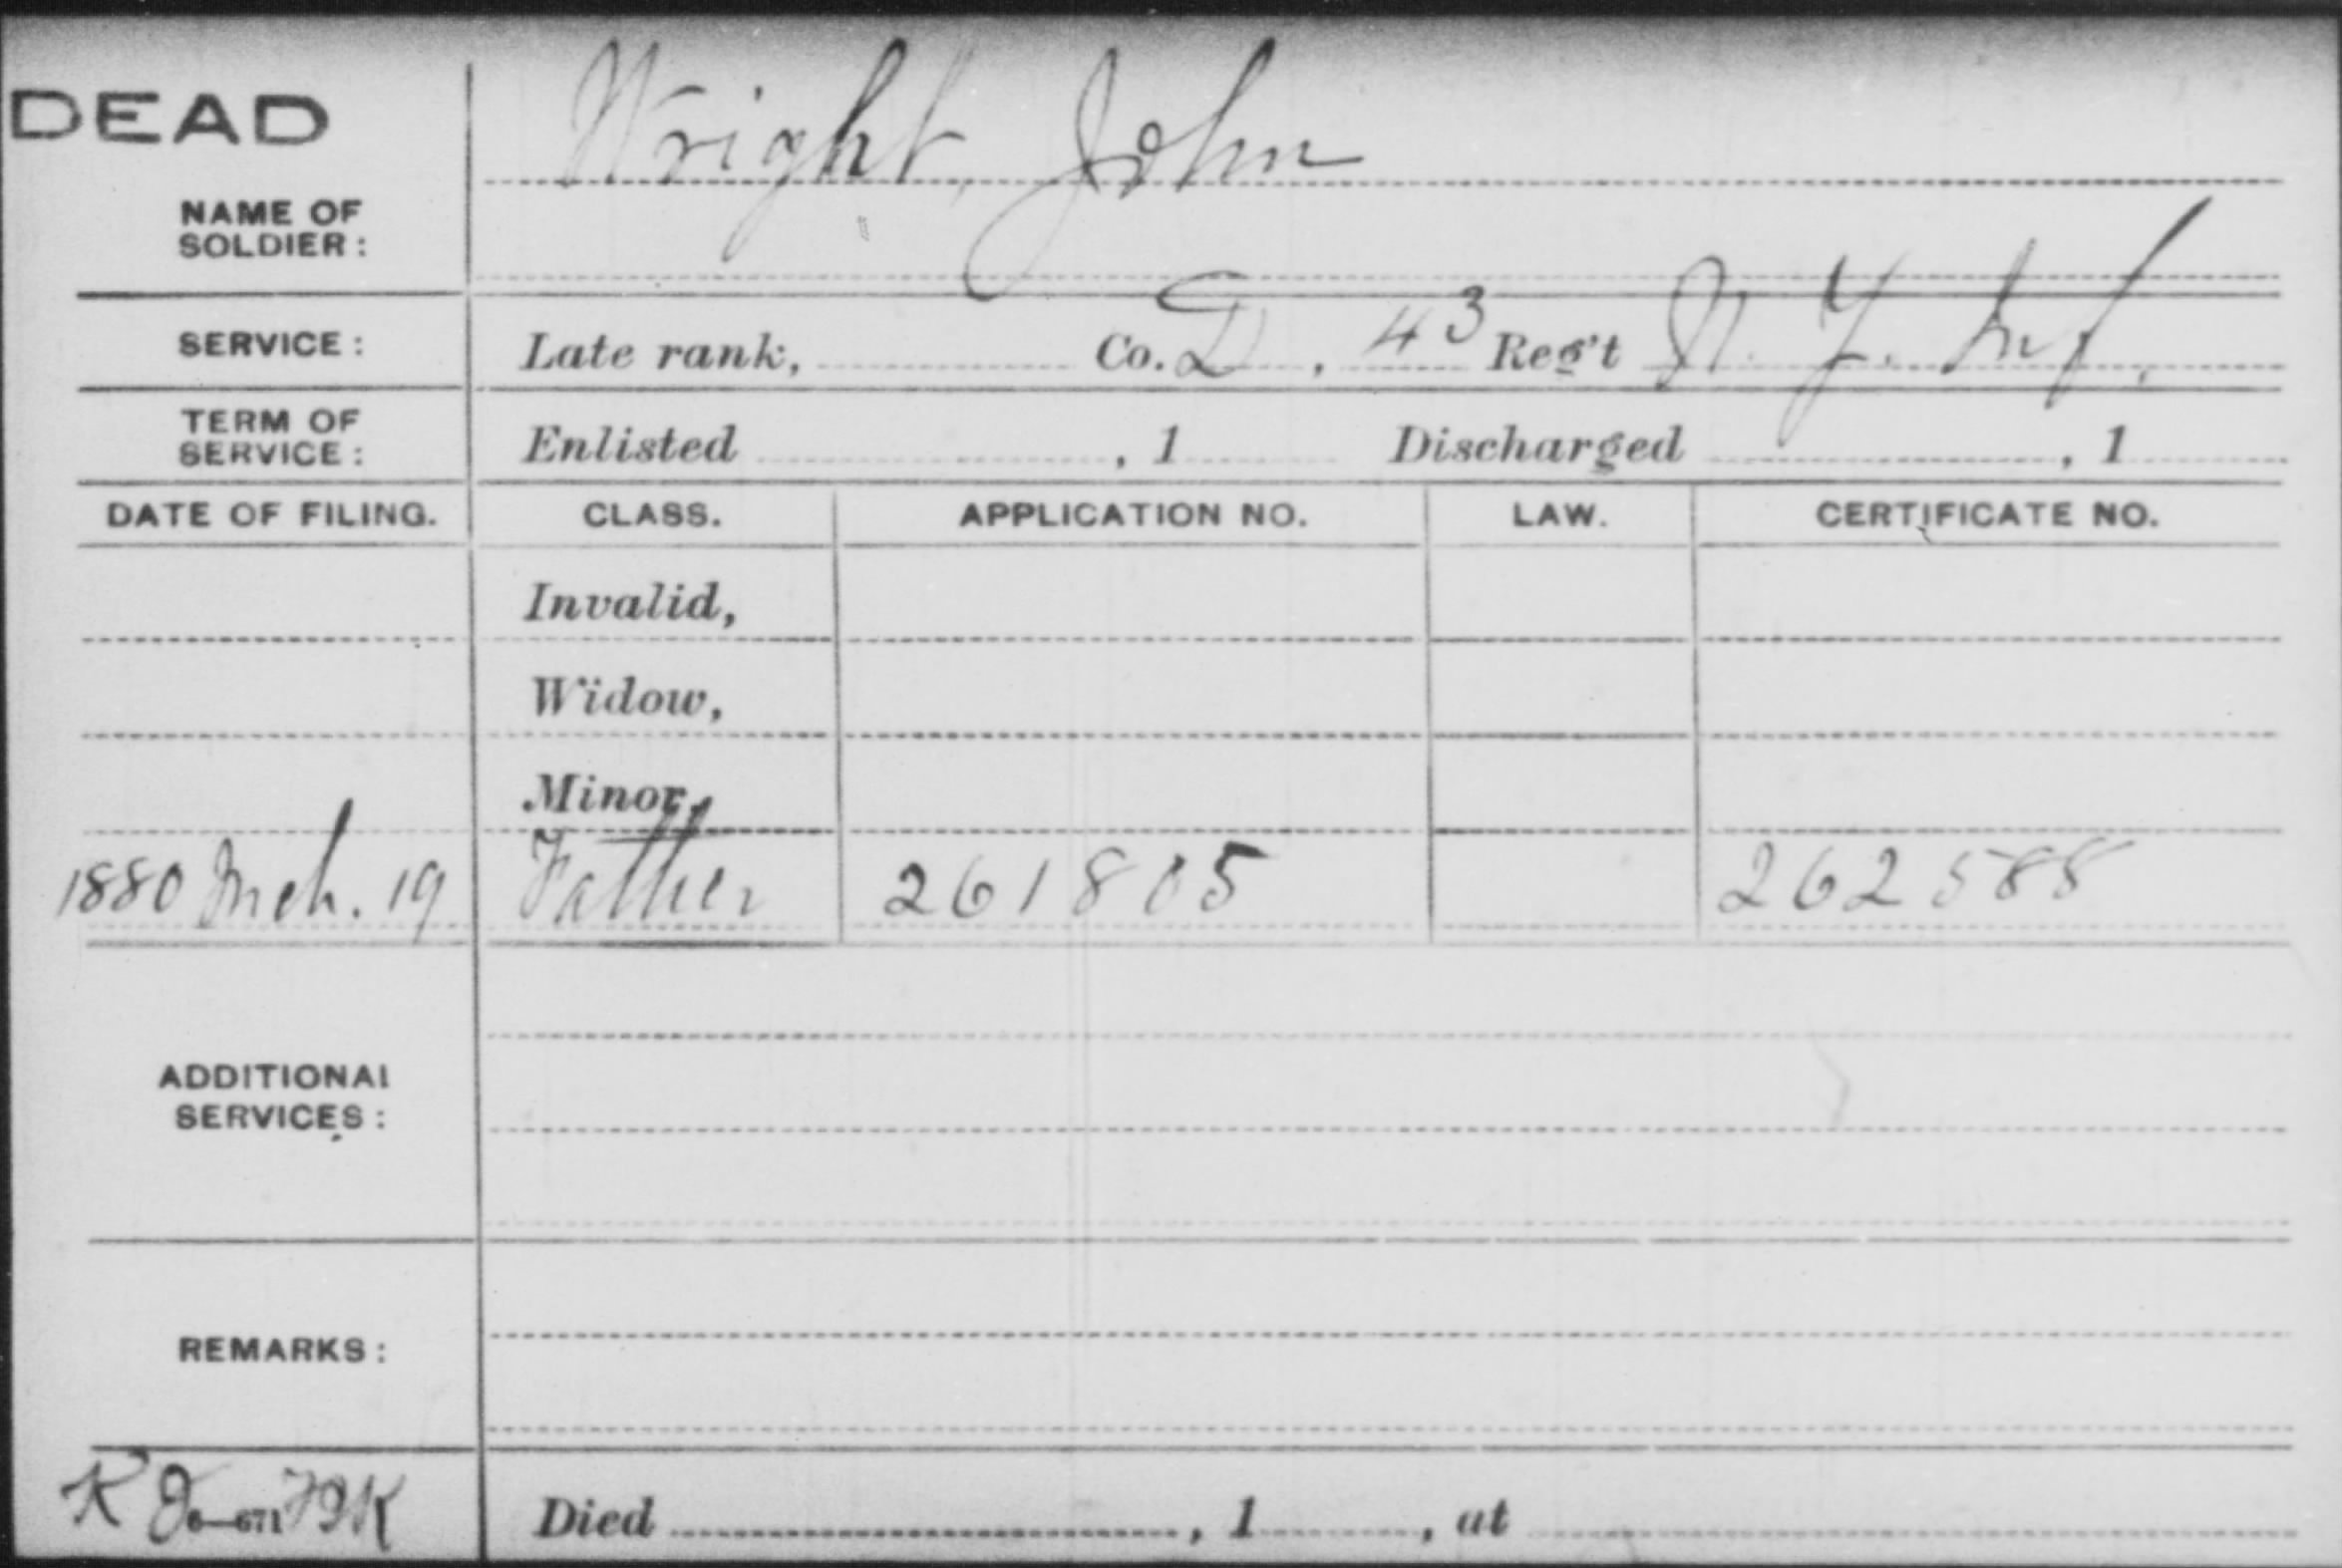 DEAD
Wright, John
NAME OF
SOLDIER:
SERVICE: Late rank, Co. D, 43 Reg't N. Y. Inf.
TERM OF
SERVICE: Enlisted , 1 Discharged , 1
DATE OF FILING. CLASS. APPLICATION NO. LAW. CERTIFICATE NO.
Invalid,
Widow,
Minor,
1880 Mch. 19 Father 261805 262588
ADDITIONAL
SERVICES:
REMARKS:
Died , 1 , at